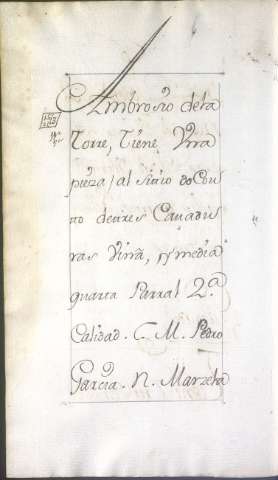 Ambrosio dela
Torre, Tiene Vna
pieza / al sitio do Cou
to detres Cauadu
ras Viña, y media
quarta Parral 2.ª
Calidad. C. M. Pedro
Garcia. N. Marzela